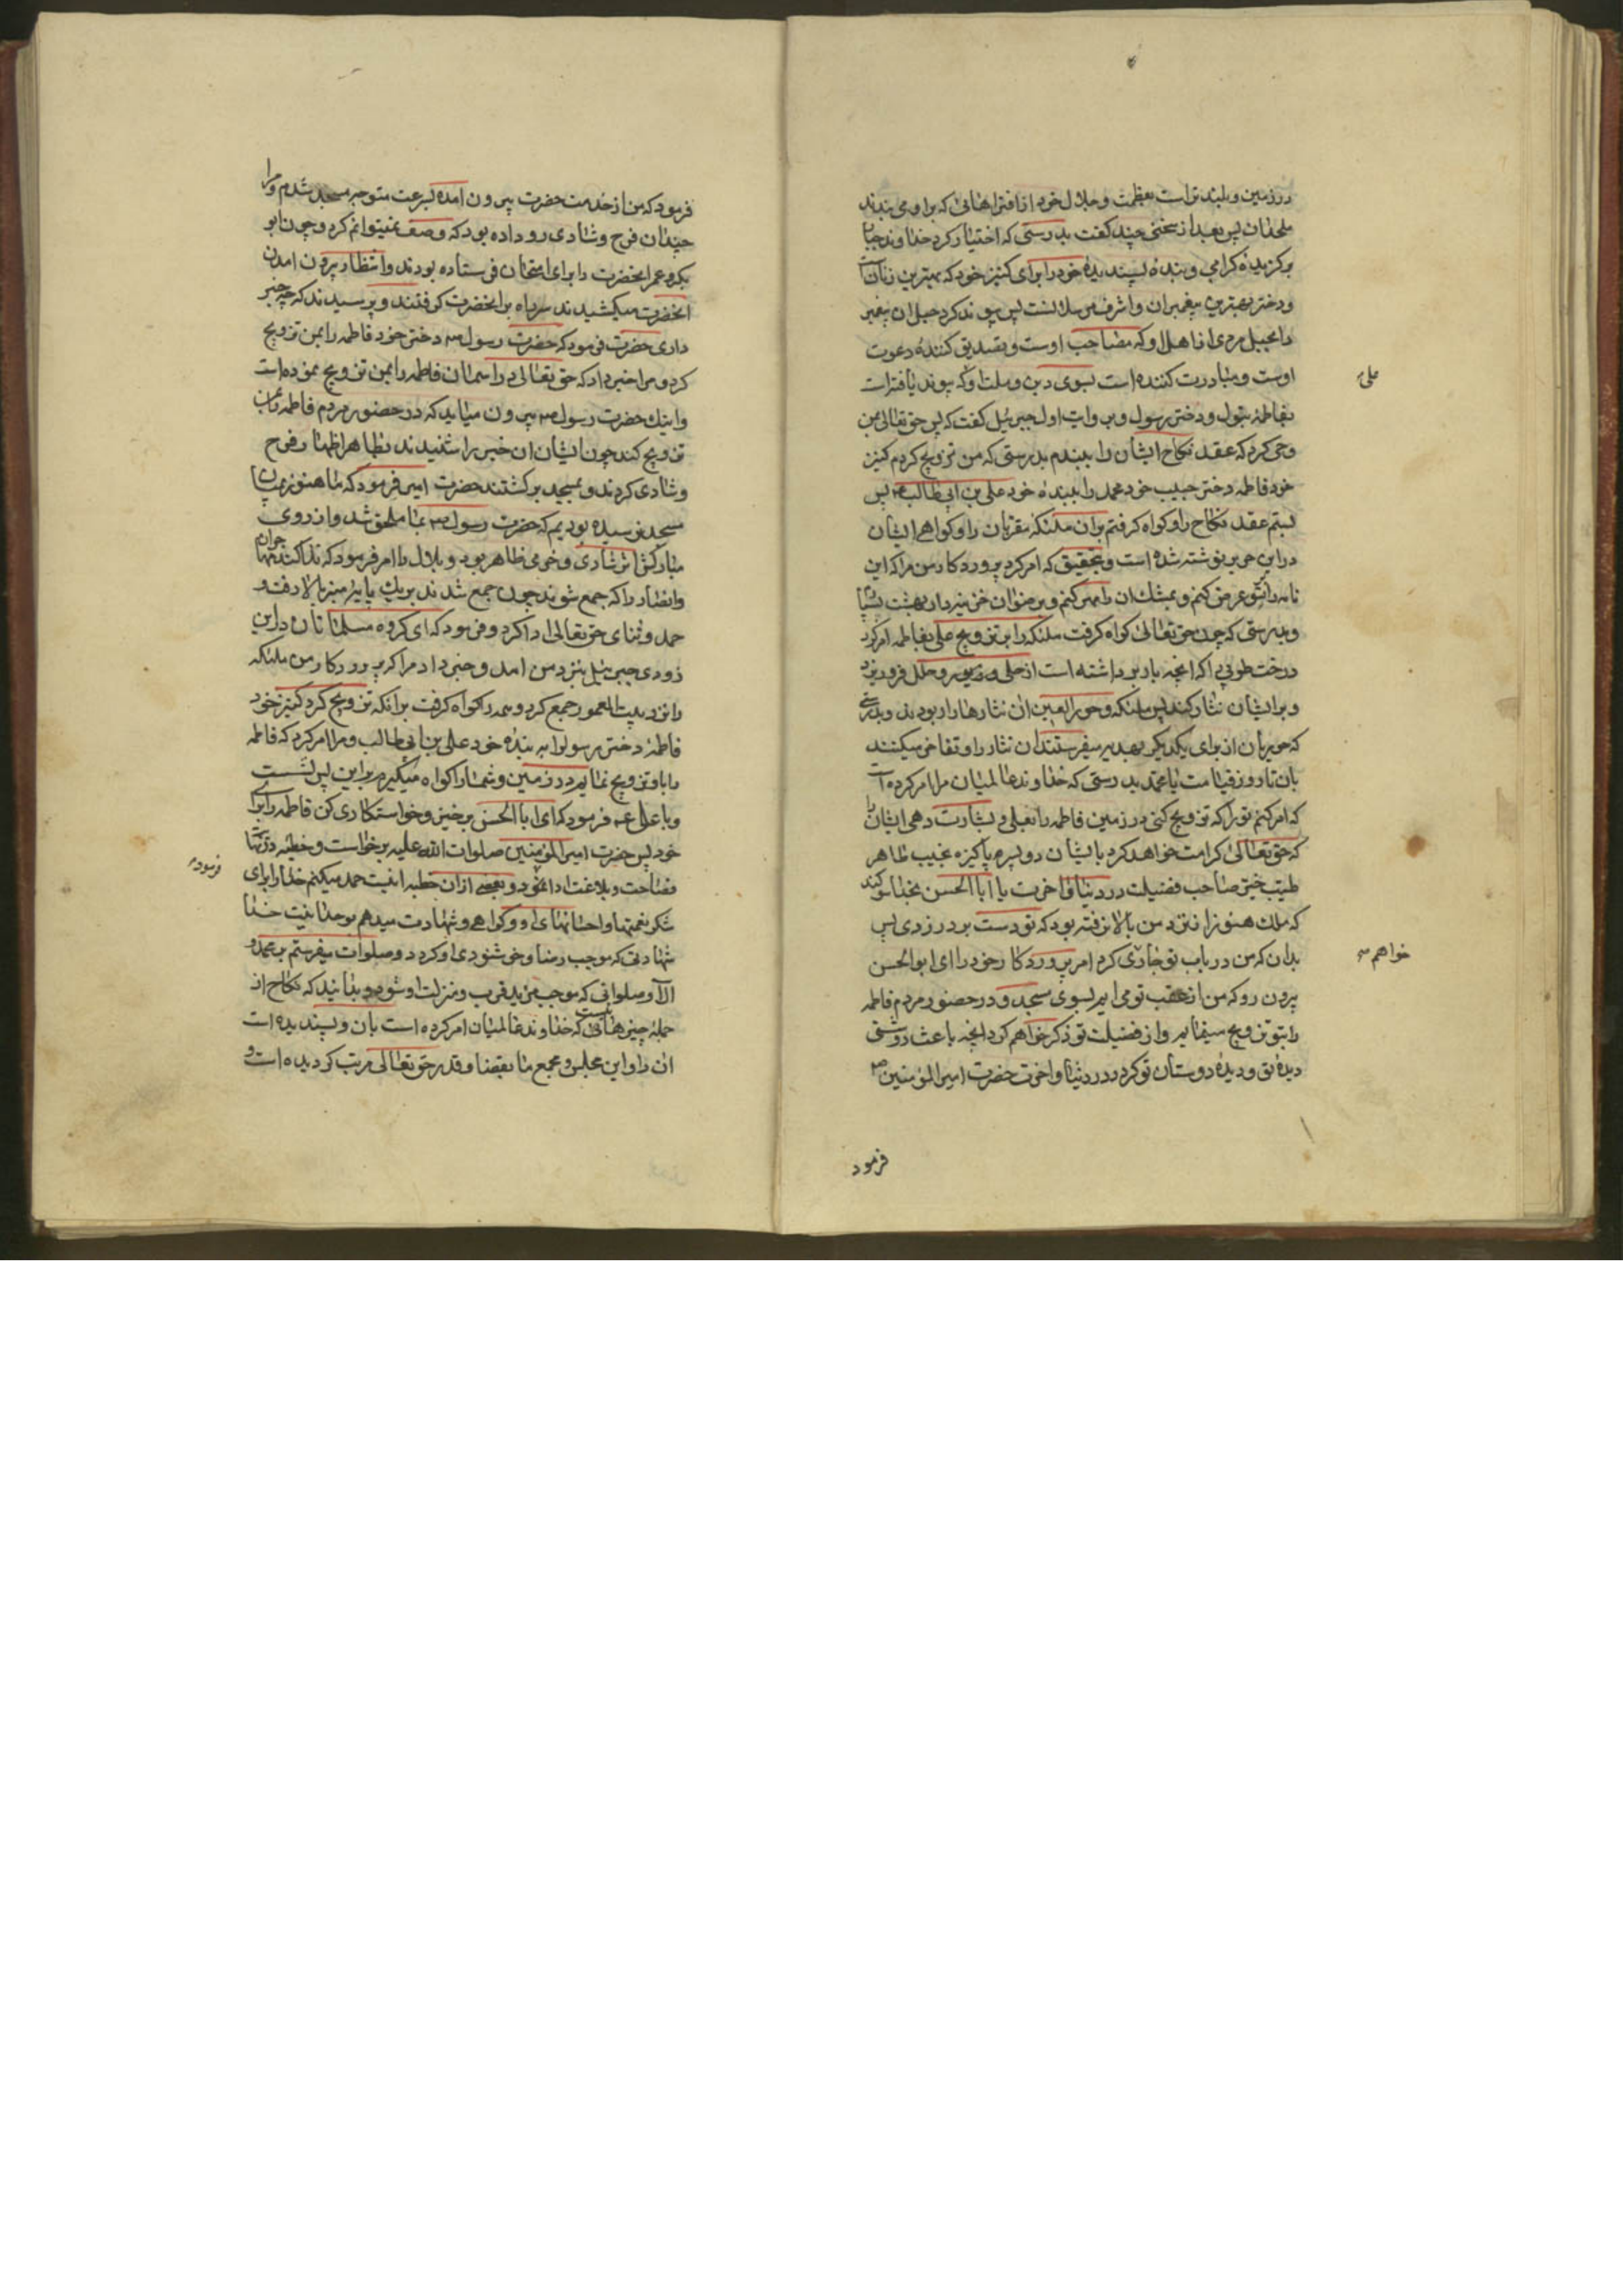 درزمین و بلند تر است بعظمت و جلال خود از افتراهائی که بر او می بندند
ملحدان پس بعد از سخنی چند گفت بدرستی که اختیار کرد خداوند جبار
برگزیدهٔ گرامی و بندهٔ پسندیدهٔ خود را برای کنیز خود که بهترین زنانست
و دختر بهترین پیغمبران و اشرف مرسلانست پس پیوند کرد حبل ان پیغمبر
را بحبل مردی از اهل او که مصاحب اوست و تصدیق کنندهٔ دعوت
اوست و مبادرت کننده است بسوی دین و ملت او که پیوند یافته است
علی
بفاطمهٔ بتول و دختر رسول و بروایت اول جبرئیل گفت که پس حق تعالی بمن
وحی کرد که عقد نکاح ایشان را ببندم بدرستی که من تزویج کردم کنیز
خود فاطمه دختر حبیب خود محمد را ببندهٔ خود علی بن ابی طالب پس
بستم عقد نکاح را و گواه گرفتم بران ملئکه مقربان را و گواهی ایشان
دراین حریر نوشته شده است و بتحقیق که امر کرد پروردگار من مرا که این
نامه را بتو عرض کنم و بمشک ان را مهر کنم و برضوان خزینه دار بهشت بسپارم
و بدرستی که چون حق تعالی گواه گرفت ملئکه را بر تزویج علی بفاطمه امر کرد
درخت طوبی را که انچه بار برداشته است از حلی و زیور و حلل فرو ریزد
و بر ایشان نثار کند پس ملئکه و حور العین ان نثارها را ربودند و بدرستی
که حوریان از برای یکدیگر بهدیه میفرستند ان نثار را و تفاخر میکنند
بان تا روز قیامت یا محمد بدرستی که خداوند عالمیان مرا امر کرده است
که امر کنم ترا که تزویج کنی در زمین فاطمه را بعلی و بشارت دهی ایشان را
که حق تعالی کرامت خواهد کرد بایشان دو پسر پاکیزه نجیب طاهر
طیب خیر صاحب فضیلت در دنیا و اخرت یا ابا الحسن بخدا سوگند
که ملک هنوز از نزد من بالا نرفته بود که تو دست بر در زدی پس
بدان که من در باب تو جاری کردم امر پروردگار خود را ای ابو الحسن
خواهم
بیرون رو که من از عقب تو می ایم بسوی مسجد و در حضور مردم فاطمه
را بتو تزویج مینمایم و از فضیلت تو ذکر خواهم کرد انچه باعث روشنی
دیدهٔ تو و دیدهٔ دوستان تو گردد در دنیا و اخرت حضرت امیر المؤمنین
فرمود
فرمود که من از خدمت حضرت بیرون امده بسرعت متوجه مسجد شدم و مرا
چندان فرح و شادی رو داده بود که وصف نمیتوانم کرد و چون ابو
بکر و عمر انحضرت را برای امتحان فرستاده بودند و انتظار بیرون امدن
انحضرت میکشیدند سر راه بر انحضرت گرفتند و پرسیدند که چه خبر
داری حضرت فرمود که حضرت رسول دختر خود فاطمه را بمن تزویج
کرد و مرا خبر داد که حق تعالی در اسمان فاطمه را بمن تزویج نموده است
و اینک حضرت رسول بیرون میاید که در حضور مردم فاطمه را بمن
تزویج کند چون ایشان ان خبر را شنیدند بظاهر اظهار فرح
و شادی کردند و بمسجد برگشتند حضرت امیر فرمود که ما هنوز بمیان
مسجد نرسیده بودیم که حضرت رسول بما ملحق شد و از روی
مبارکش اثر شادی و خرمی ظاهر بود و بلال را امر فرمود که ندا کند مهاجران
و انصار را که جمع شوند چون جمع شدند بر یک پایه منبر بالا رفت و
حمد و ثنای حق تعالی ادا کرد و فرمود که ای گروه مسلمانان در این
زودی جبرئیل بنزد من امد و خبر داد مرا که پروردگار من ملئکه
را نزد بیت المعمور جمع کرد و همه را گواه گرفت بر انکه تزویج کرد کنیز خود
فاطمهٔ دختر رسول را به بندهٔ خود علی بن ابی طالب و مرا امر کرد که فاطمه
را باو تزویج نمایم در زمین و شما را گواه میگیرم بر این پس نشست
و با علی فرمود که ای ابا الحسن برخیز و خواستکاری کن فاطمه را برای
خود پس حضرت امیر المؤمنین صلوات الله علیه برخواست و خطبه در نهایت
فرموده
فصاحت و بلاغت ادا نمود و بعضی از ان خطبه اینست حمد میکنم خدا را برای
شکر نعمتها و احسانهای او و گواهی و شهادت میدهم بوحدانیت خدا
شهادتی که موجب رضا و خوشنودی او گردد و صلوات میفرستم بر محمد و
ال او صلواتی که موجب مزید قرب و منزلت او شود و بدانید که نکاح از
جمله چیزهائیست که خداوند عالمیان امر کرده است بان و پسندیده است
ان را و این مجلس و مجمع ما بقضا و قدر حق تعالی مرتب گردیده است و